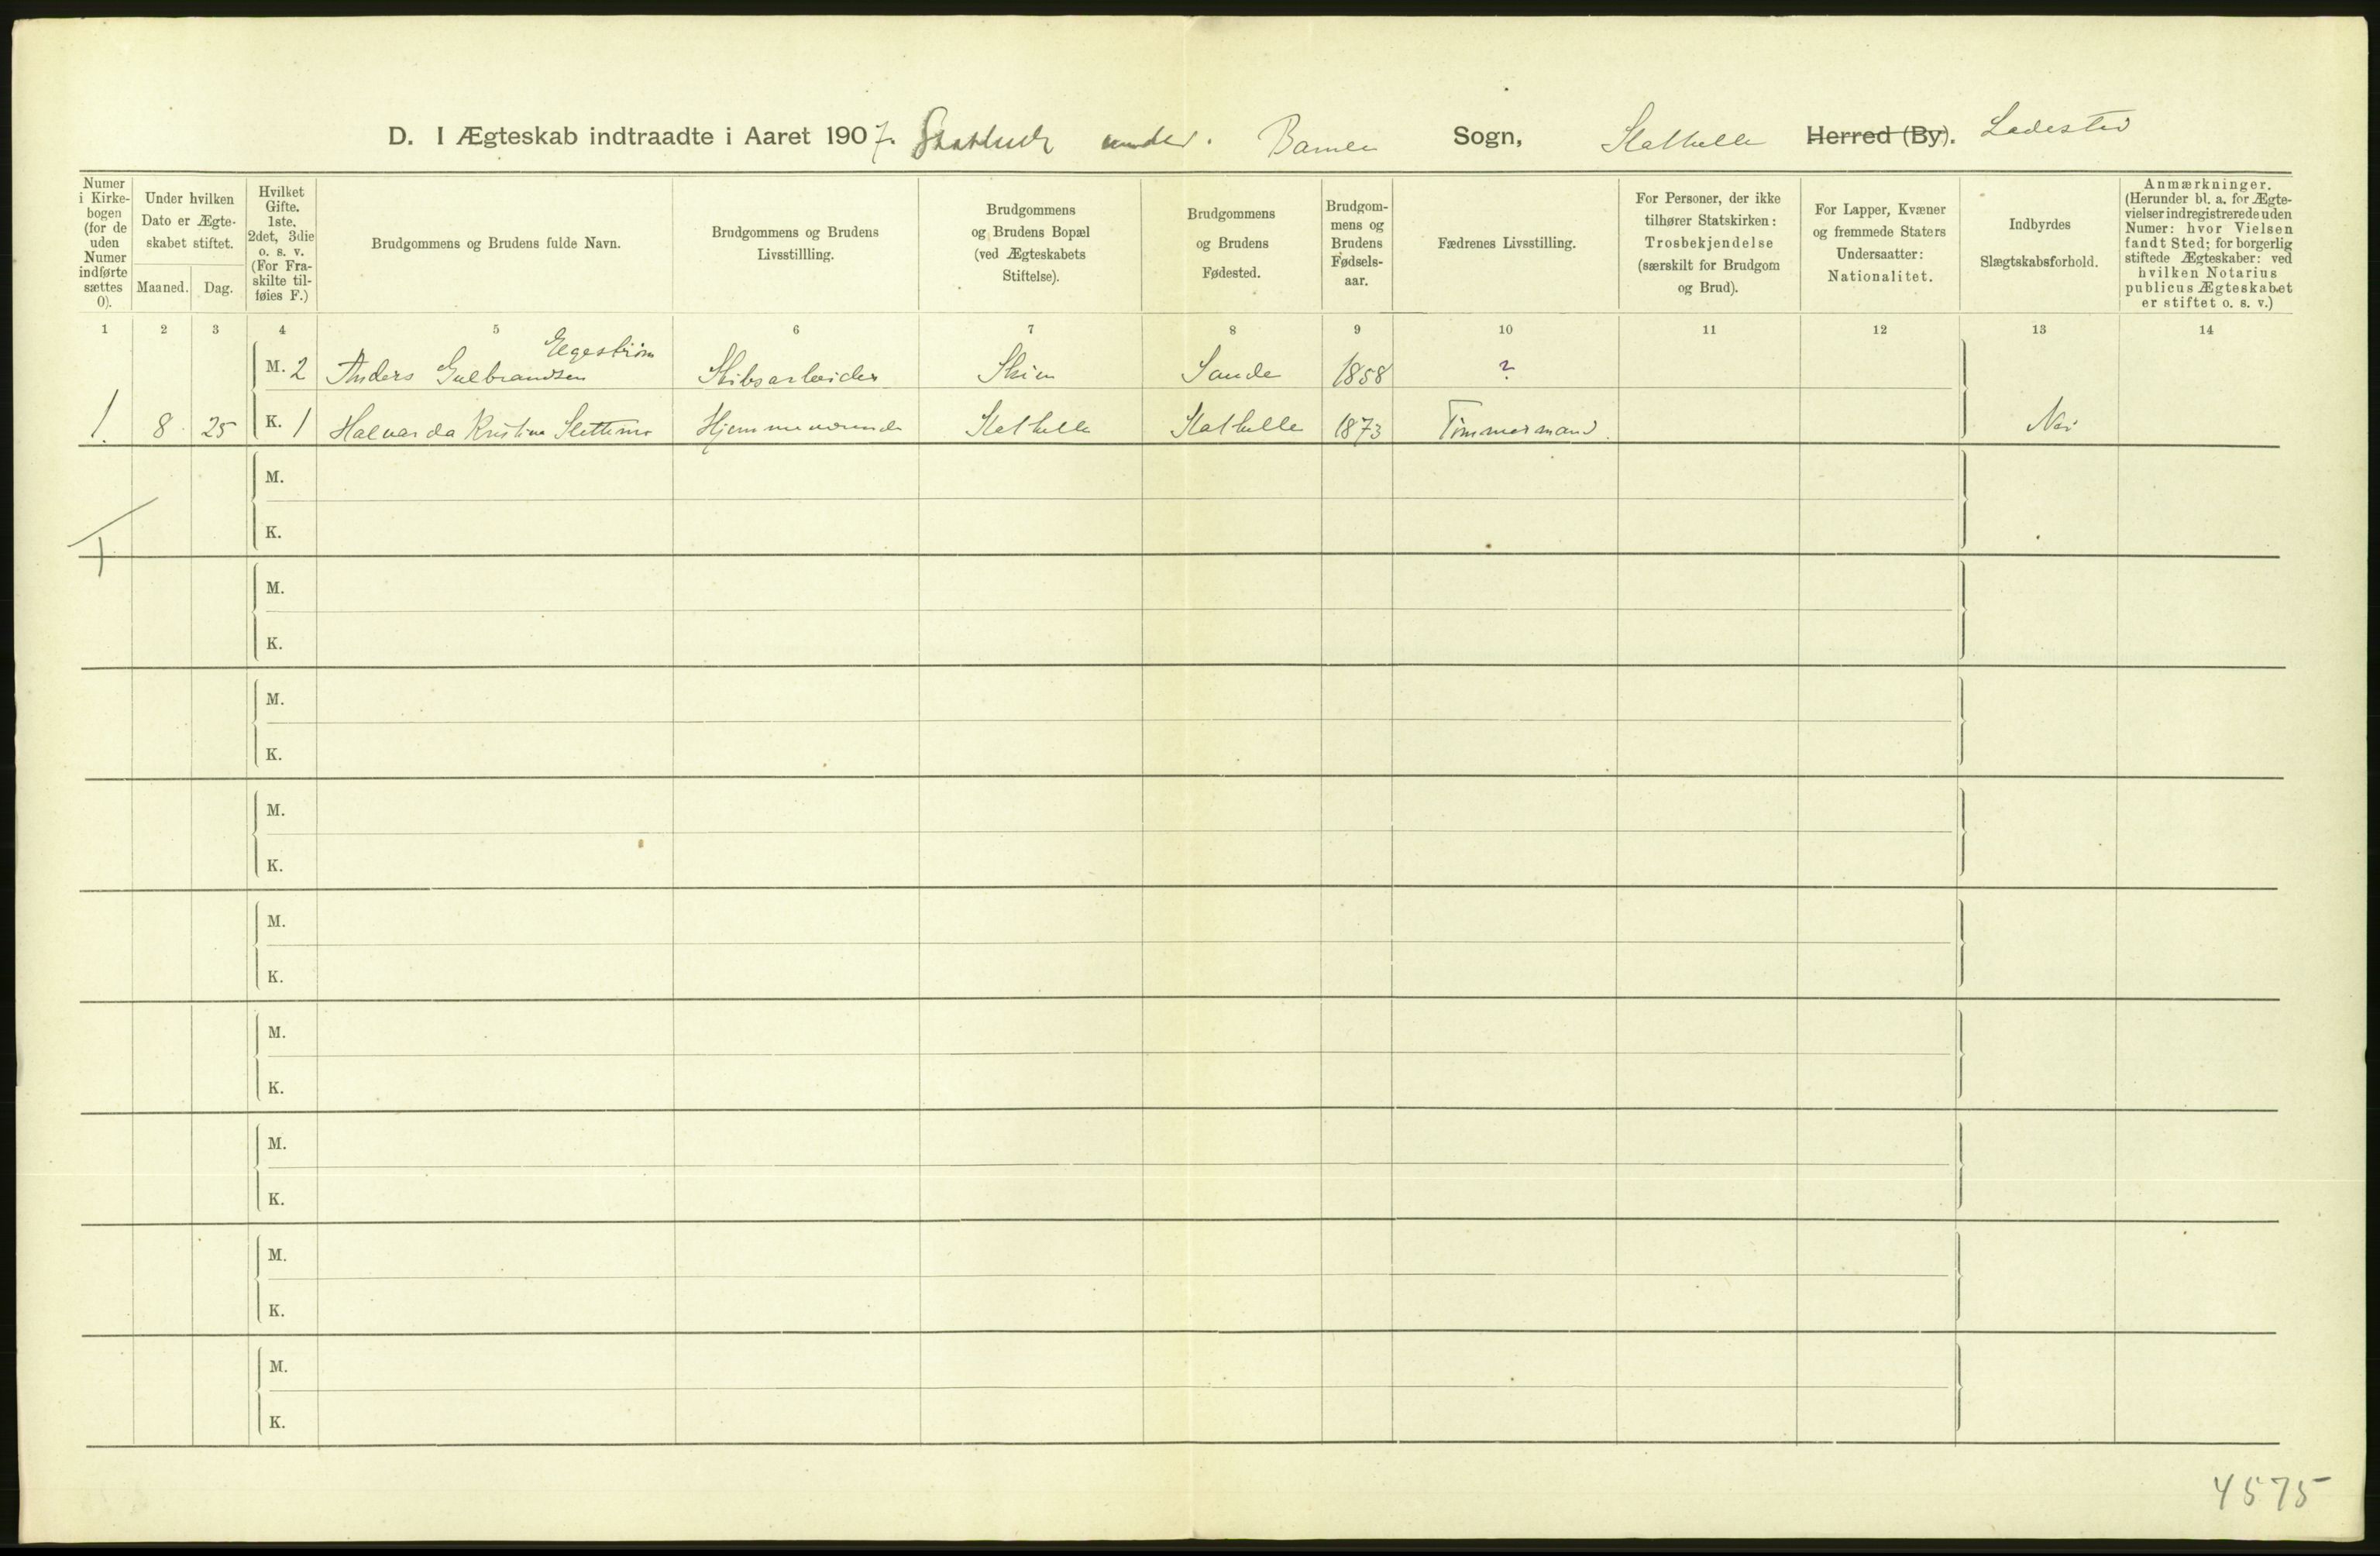 D. I Ægteskab indtraadte i Aaret 1907. under. Bamle Sogn, Stathelle Herred (By). Ladested
Numer i Kirkebogen (for de uden Numer indførte sættes 0).
Under hvilken Dato er Ægteskabet stiftet.
Maaned. Dag.
Hvilket Gifte. 1ste, 2det, 3die o. s. v. (For Fraskilte tilføies F.)
Brudgommens og Brudens fulde Navn.
Brudgommens og Brudens Livsstillling.
Brudgommens og Brudens Bopæl (ved Ægteskabets Stiftelse).
Brudgommens og Brudens Fødested.
Brudgommens og Brudens Fødselsaar.
Fædrenes Livsstilling.
For Personer, der ikke tilhører Statskirken: Trosbekjendelse (særskilt for Brudgom og Brud).
For Lapper, Kvæner og fremmede Staters Undersaatter: Nationalitet.
Indbyrdes Slægtskabsforhold.
Anmærkninger. (Herunder bl. a. for Ægtevielser indregistrerede uden Numer: hvor Vielsen fandt Sted; for borgerlig stiftede Ægteskaber: ved hvilken Notarius publicus Ægteskabet er stiftet o. s. v.)
1 2 3 4 5 6 7 8 9 10 11 12 13 14
Elgestrøm
M. 2 Anders Gulbrandsen Skibsarbeider Skien Sande 1858 ?
1. 8 25 K. 1 Halvarda Kristine Hjemmeværende Stathelle Stathelle 1873 Tømmermand. Nei
M.
K.
1
M.
K.
M.
K.
M.
K.
M.
K.
M.
K.
M.
K.
M.
K.
M.
K.
4575